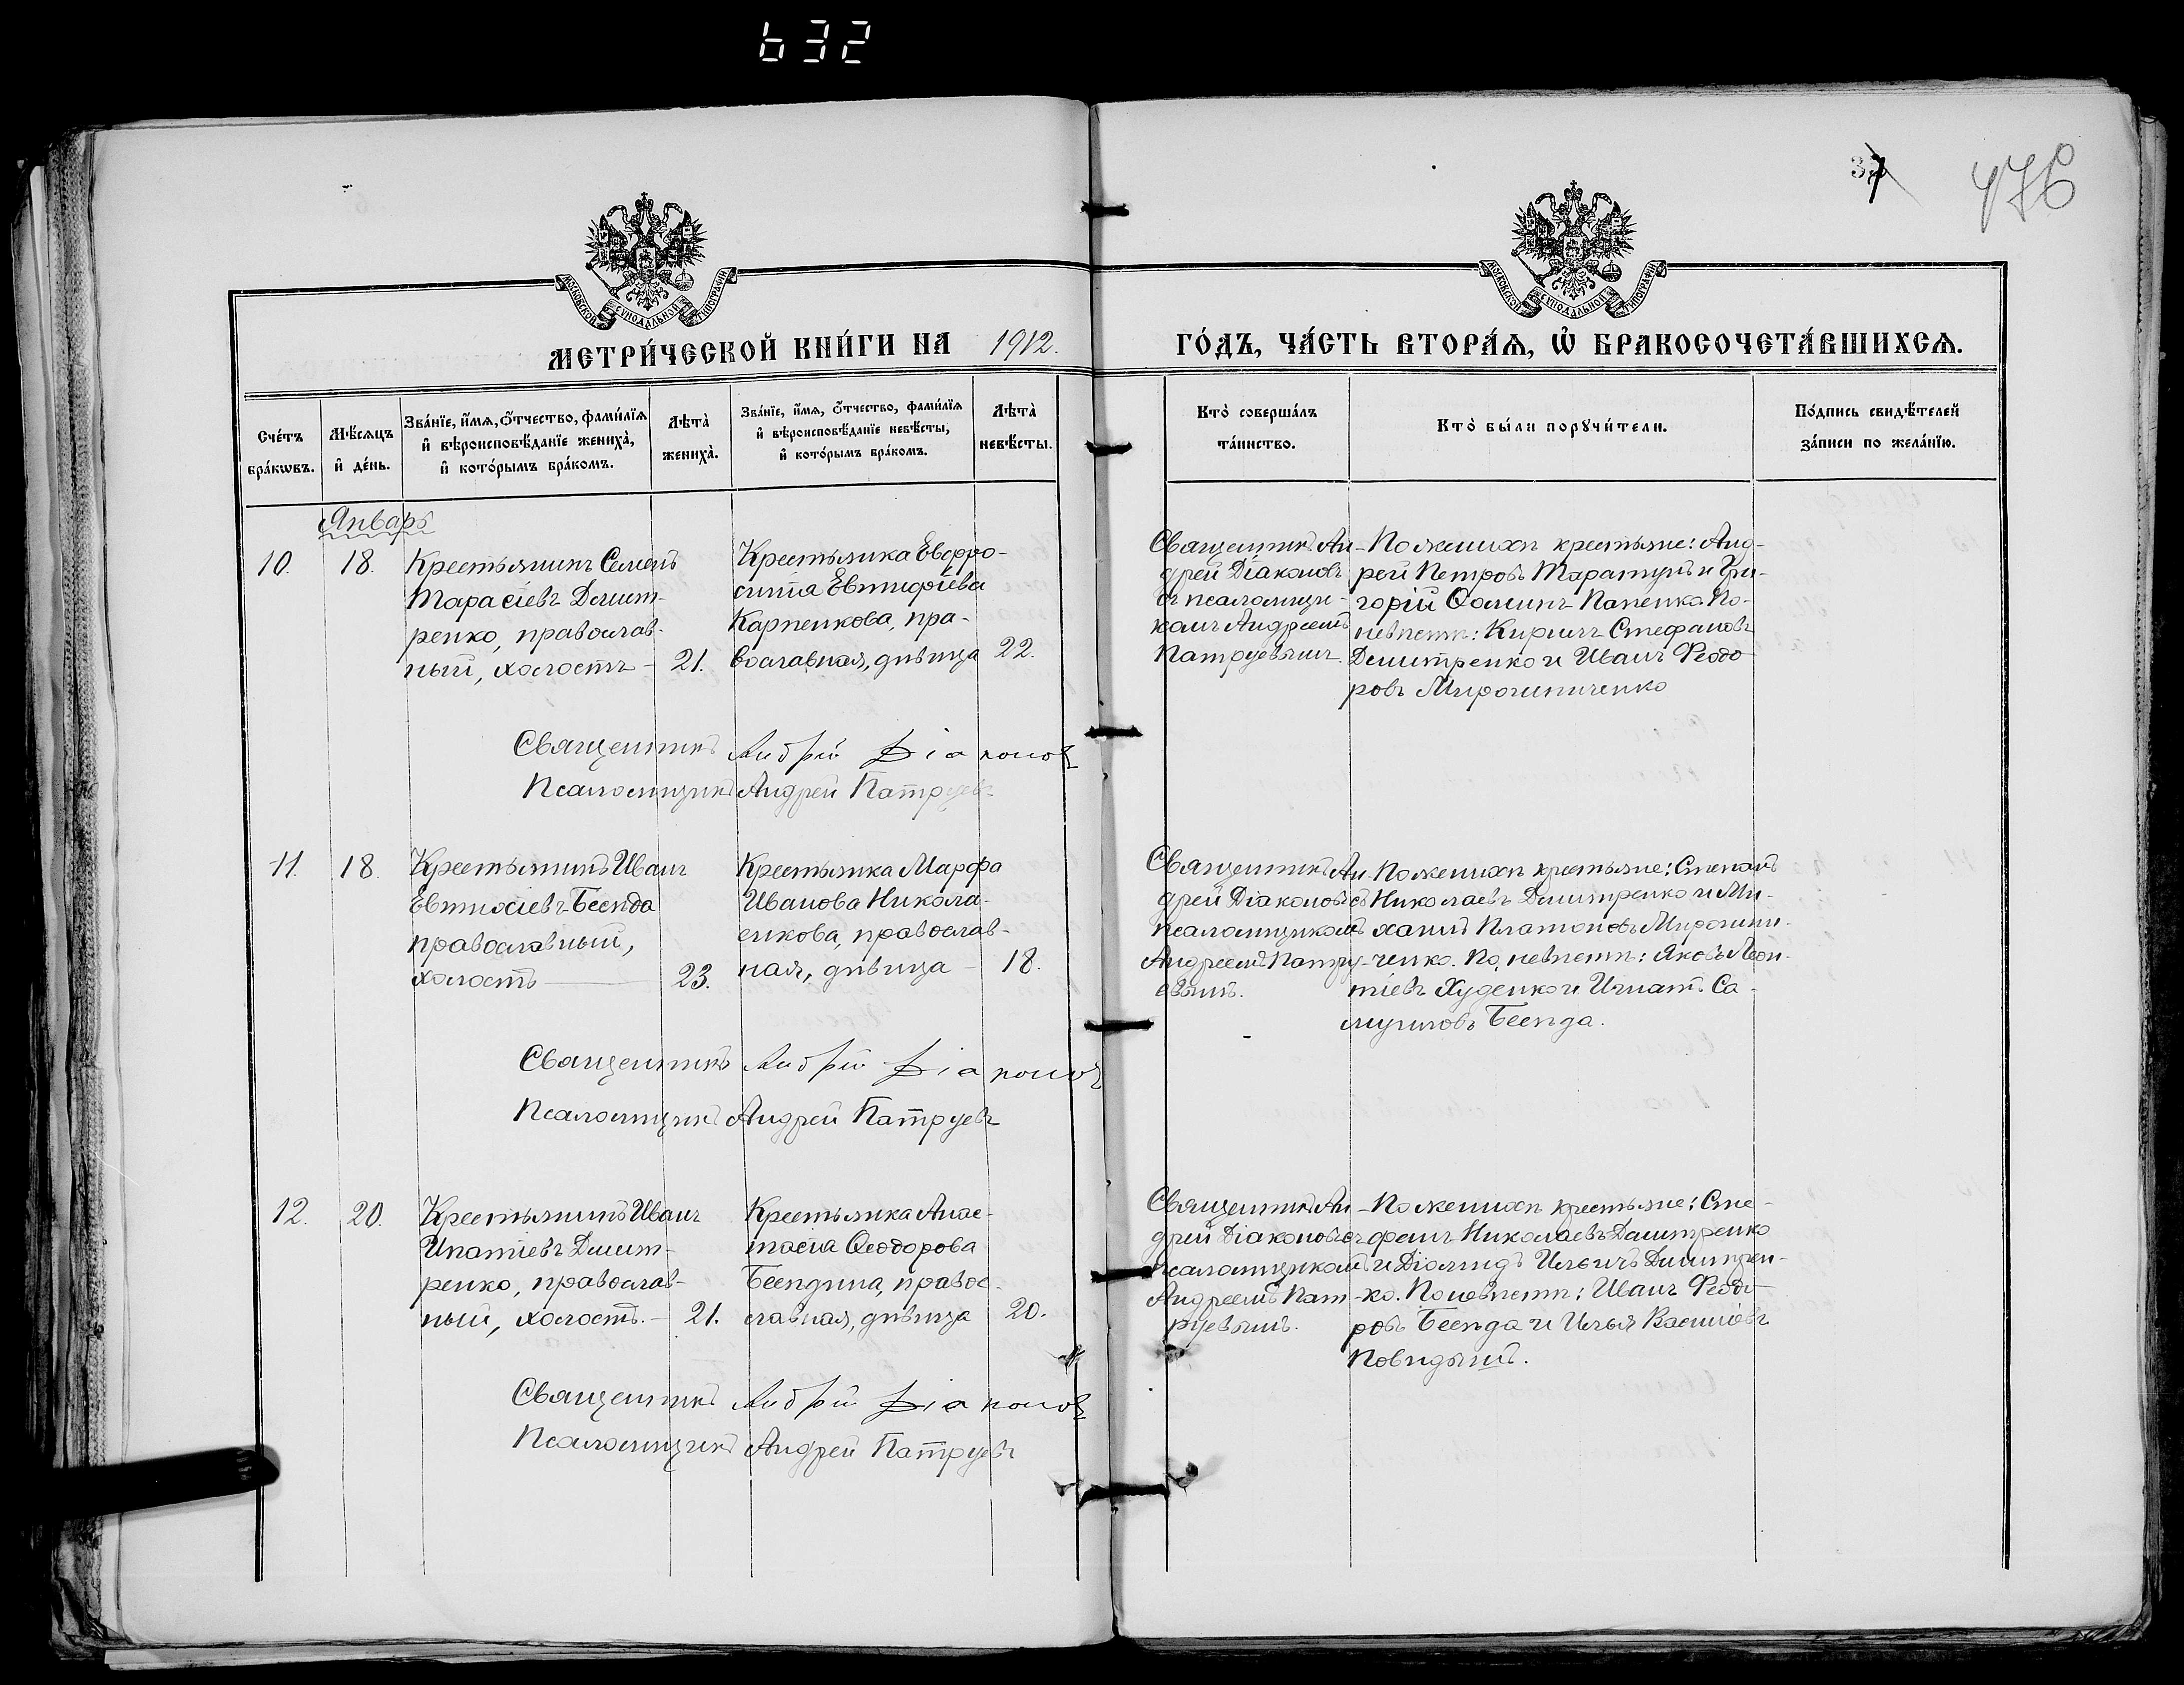 632
37
476
МОСКОВСКОЙ СѴНОДАЛЬНОЙ ТИПОГРАФІИ
МОСКОВСКОЙ СѴНОДАЛЬНОЙ ТИПОГРАФІИ
МЕТРИ́ЧЕСКОЙ КНИ́ГИ НА 1912.
ГО́ДЪ, ЧА́СТЬ ВТОРА́Ѧ, Ѽ БРАКОСОЧЕТА́ВШИХСѦ.
Сче́тъ
бра́кѡвъ.
Мѣ́сяцъ
и҆ де́нь.
Зва́нїе, и҆́мѧ, ѻ҆́тчество, фами́лїѧ
и҆ вѣроисповѣ́данїе жениха̀,
и҆ кото́рымъ бра́комъ.
Лѣта̀
жениха̀.
Зва́нїе, и҆́мѧ, ѻ҆́тчество, фами́лїѧ
и҆ вѣроисповѣ́данїе невѣ́сты,
и҆ кото́рымъ бра́комъ.
Лѣта̀
невѣ́сты.
Кто̀ соверша́лъ
та́инство.
Кто̀ бы́ли порꙋчи́тели.
По́дпись свидѣ́телей
за́писи по жела́нїю.
Январь
10.
18.
Крестьянинъ Семенъ
Тарасіевъ Димит-
ренко, православ-
ный, холостъ –
21.
Крестьянка Евфро-
синія Евтифіева
Карпенкова, пра-
вославная, дѣвица
22.
Священникъ Ан-
дрей Діаконовъ
съ псаломщи-
комъ Андреемъ
Патруевымъ.
По женихѣ крестьяне: Анд-
рей Петровъ Таратунъ и Гри-
горій Ѳоминъ Папенко. По
невѣстѣ: Кириллъ Стефановъ
Димитренко и Иванъ Феодо-
ровъ Мирошниченко
Священникъ Андрей Діаконовъ
Псаломщикъ Андрей Патруевъ
11.
18.
Крестьянинъ Иванъ
Евтихіевъ Беенда
православный,
холостъ
23.
Крестьянка Марфа
Иванова Никола-
енкова, православ-
ная, дѣвица –
18.
Священникъ Ан-
дрей Діаконовъ съ
псаломщикомъ
Андреемъ Патру-
евымъ.
По женихѣ крестьяне: Степанъ
Николаевъ Димитренко и Ми-
хаилъ Платоновъ Мирошни-
ченко. По невѣстѣ: Яковъ Леон-
тіевъ Худенко и Игнатъ Са-
муиловъ Беенда.
Священникъ Андрей Діаконовъ
Псаломщикъ Андрей Патруевъ
12.
20.
Крестьянинъ Иванъ
Ипатіевъ Димит-
ренко, православ-
ный, холостъ. –
21.
Крестьянка Анас-
тасія Ѳеодорова
Беендина, правос-
лавная, дѣвица
20.
Священникъ Ан-
дрей Діаконовъ съ
псаломщикомъ
Андреемъ Пат-
руевымъ.
По женихѣ крестьяне: Сте-
фанъ Николаевъ Димитренко
и Діомидъ Ильичъ Димитрен-
ко. По невѣстѣ: Иванъ Феодо-
ровъ Беенда и Илья Василіевъ
Священникъ Андрей Діаконовъ
Псаломщикъ Андрей Патруевъ